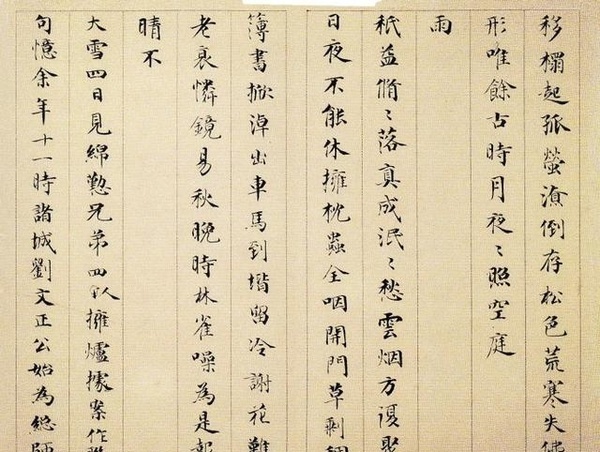 移榻起孤螢滾倒存松色荒寒失佛
形唯餘古時月夜〻照空庭
雨
秖益翛〻落真成泯〻愁雲烟方復聚
日夜不能休擁枕蟲全咽開門草剩
簿書掀淖出車馬到堦留冷謝花難
老衰憐鏡易秋晚時林雀噪為是報
晴不
大雪四日見綿懃兄弟四人擁爐據案作
句憶余年十一時諸城劉文正公始為總師